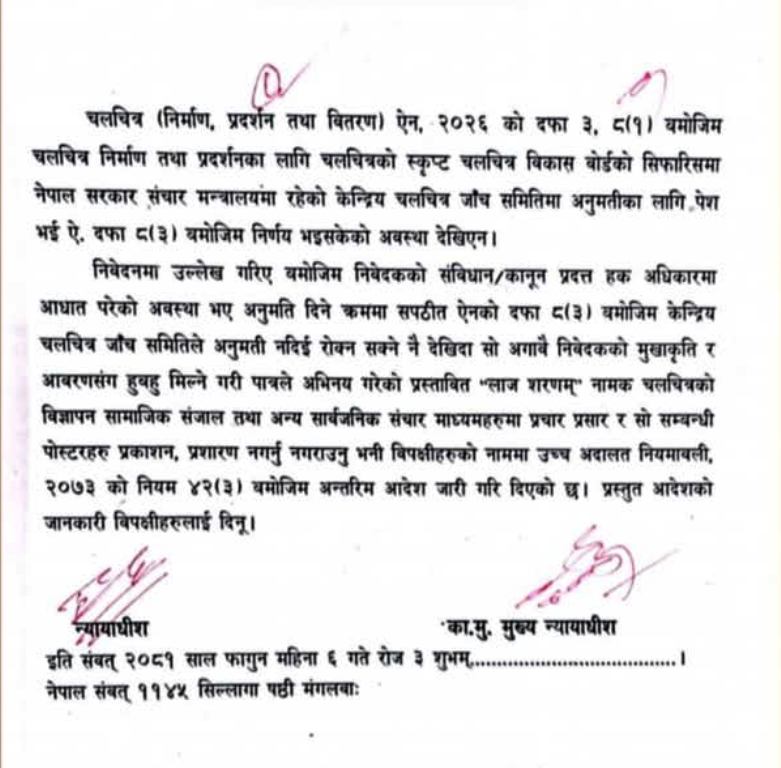 चलचित्र (निर्माण, प्रदर्शन तथा वितरण) ऐन, २०२६ को दफा ३, ८(१) बमोजिम
चलचित्र निर्माण तथा प्रदर्शनका लागि चलचित्रको स्कृप्ट चलचित्र विकास बोर्डको सिफारिसमा
नेपाल सरकार संचार मन्त्रालयमा रहेको केन्द्रिय चलचित्र जाँच समितिमा अनुमतीका लागि पेश
भई ऐ. दफा ८(३) बमोजिम निर्णय भइसकेको अवस्था देखिएन।
निवेदनमा उल्लेख गरिए बमोजिम निवेदकको संविधान/कानून प्रदत्त हक अधिकारमा
आघात परेको अवस्था भए अनुमति दिने क्रममा सपठीत ऐनको दफा ८(३) बमोजिम केन्द्रिय
चलचित्र जाँच समितिले अनुमती नदिई रोक्न सक्ने नै देखिदा सो अगाबै निवेदकको मुखाकृति र
आवरणसंग हुबहु मिल्ने गरी पात्रले अभिनय गरेको प्रस्तावित "लाज शरणम्" नामक चलचित्रको
विज्ञापन सामाजिक संजाल तथा अन्य सार्वजनिक संचार माध्यमहरुमा प्रचार प्रसार र सो सम्बन्धी
पोस्टरहरु प्रकाशन, प्रशारण नगर्नु नगराउनु भनी विपक्षीहरुको नाममा उच्च अदालत नियमावली,
२०७३ को नियम ४२(३) बमोजिम अन्तरिम आदेश जारी गरि दिएको छ। प्रस्तुत आदेशको
जानकारी विपक्षीहरुलाई दिनू।
न्यायाधीश का.मु. मुख्य न्यायाधीश
इति संबत् २०८१ साल फागुन महिना ६ गते रोज ३ शुभम्.......................................।
नेपाल संबत् ११४५ सिल्लागा षष्ठी मंगलबाः